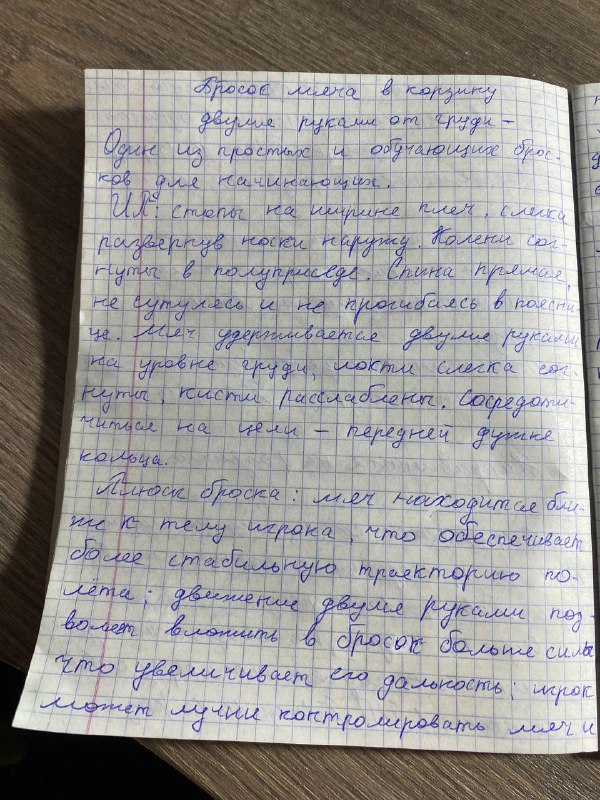 Бросок мяча в корзину
двумя руками от груди –
Один из простых и обучающих брос-
ков для начинающих.
ИП: стопы на ширине плеч, слегка
развернув носки наружу. Колени сог-
нуты в полуприседе. Спина прямая,
не сутулясь и не прогибаясь в поясни-
це. Мяч удерживается двумя руками
на уровне груди, локти слегка сог-
нуты, кисти расслаблены. Сосредото-
читься на цели – передней дужке
кольца.
Плюск броска: мяч находится бли-
же к телу игрока, что обеспечивает
более стабильную траекторию по-
лёта; движение двумя руками поз-
волят вложить в бросок больше силы
что увеличивает его дальность; игрок
может лучше контролировать мяч и